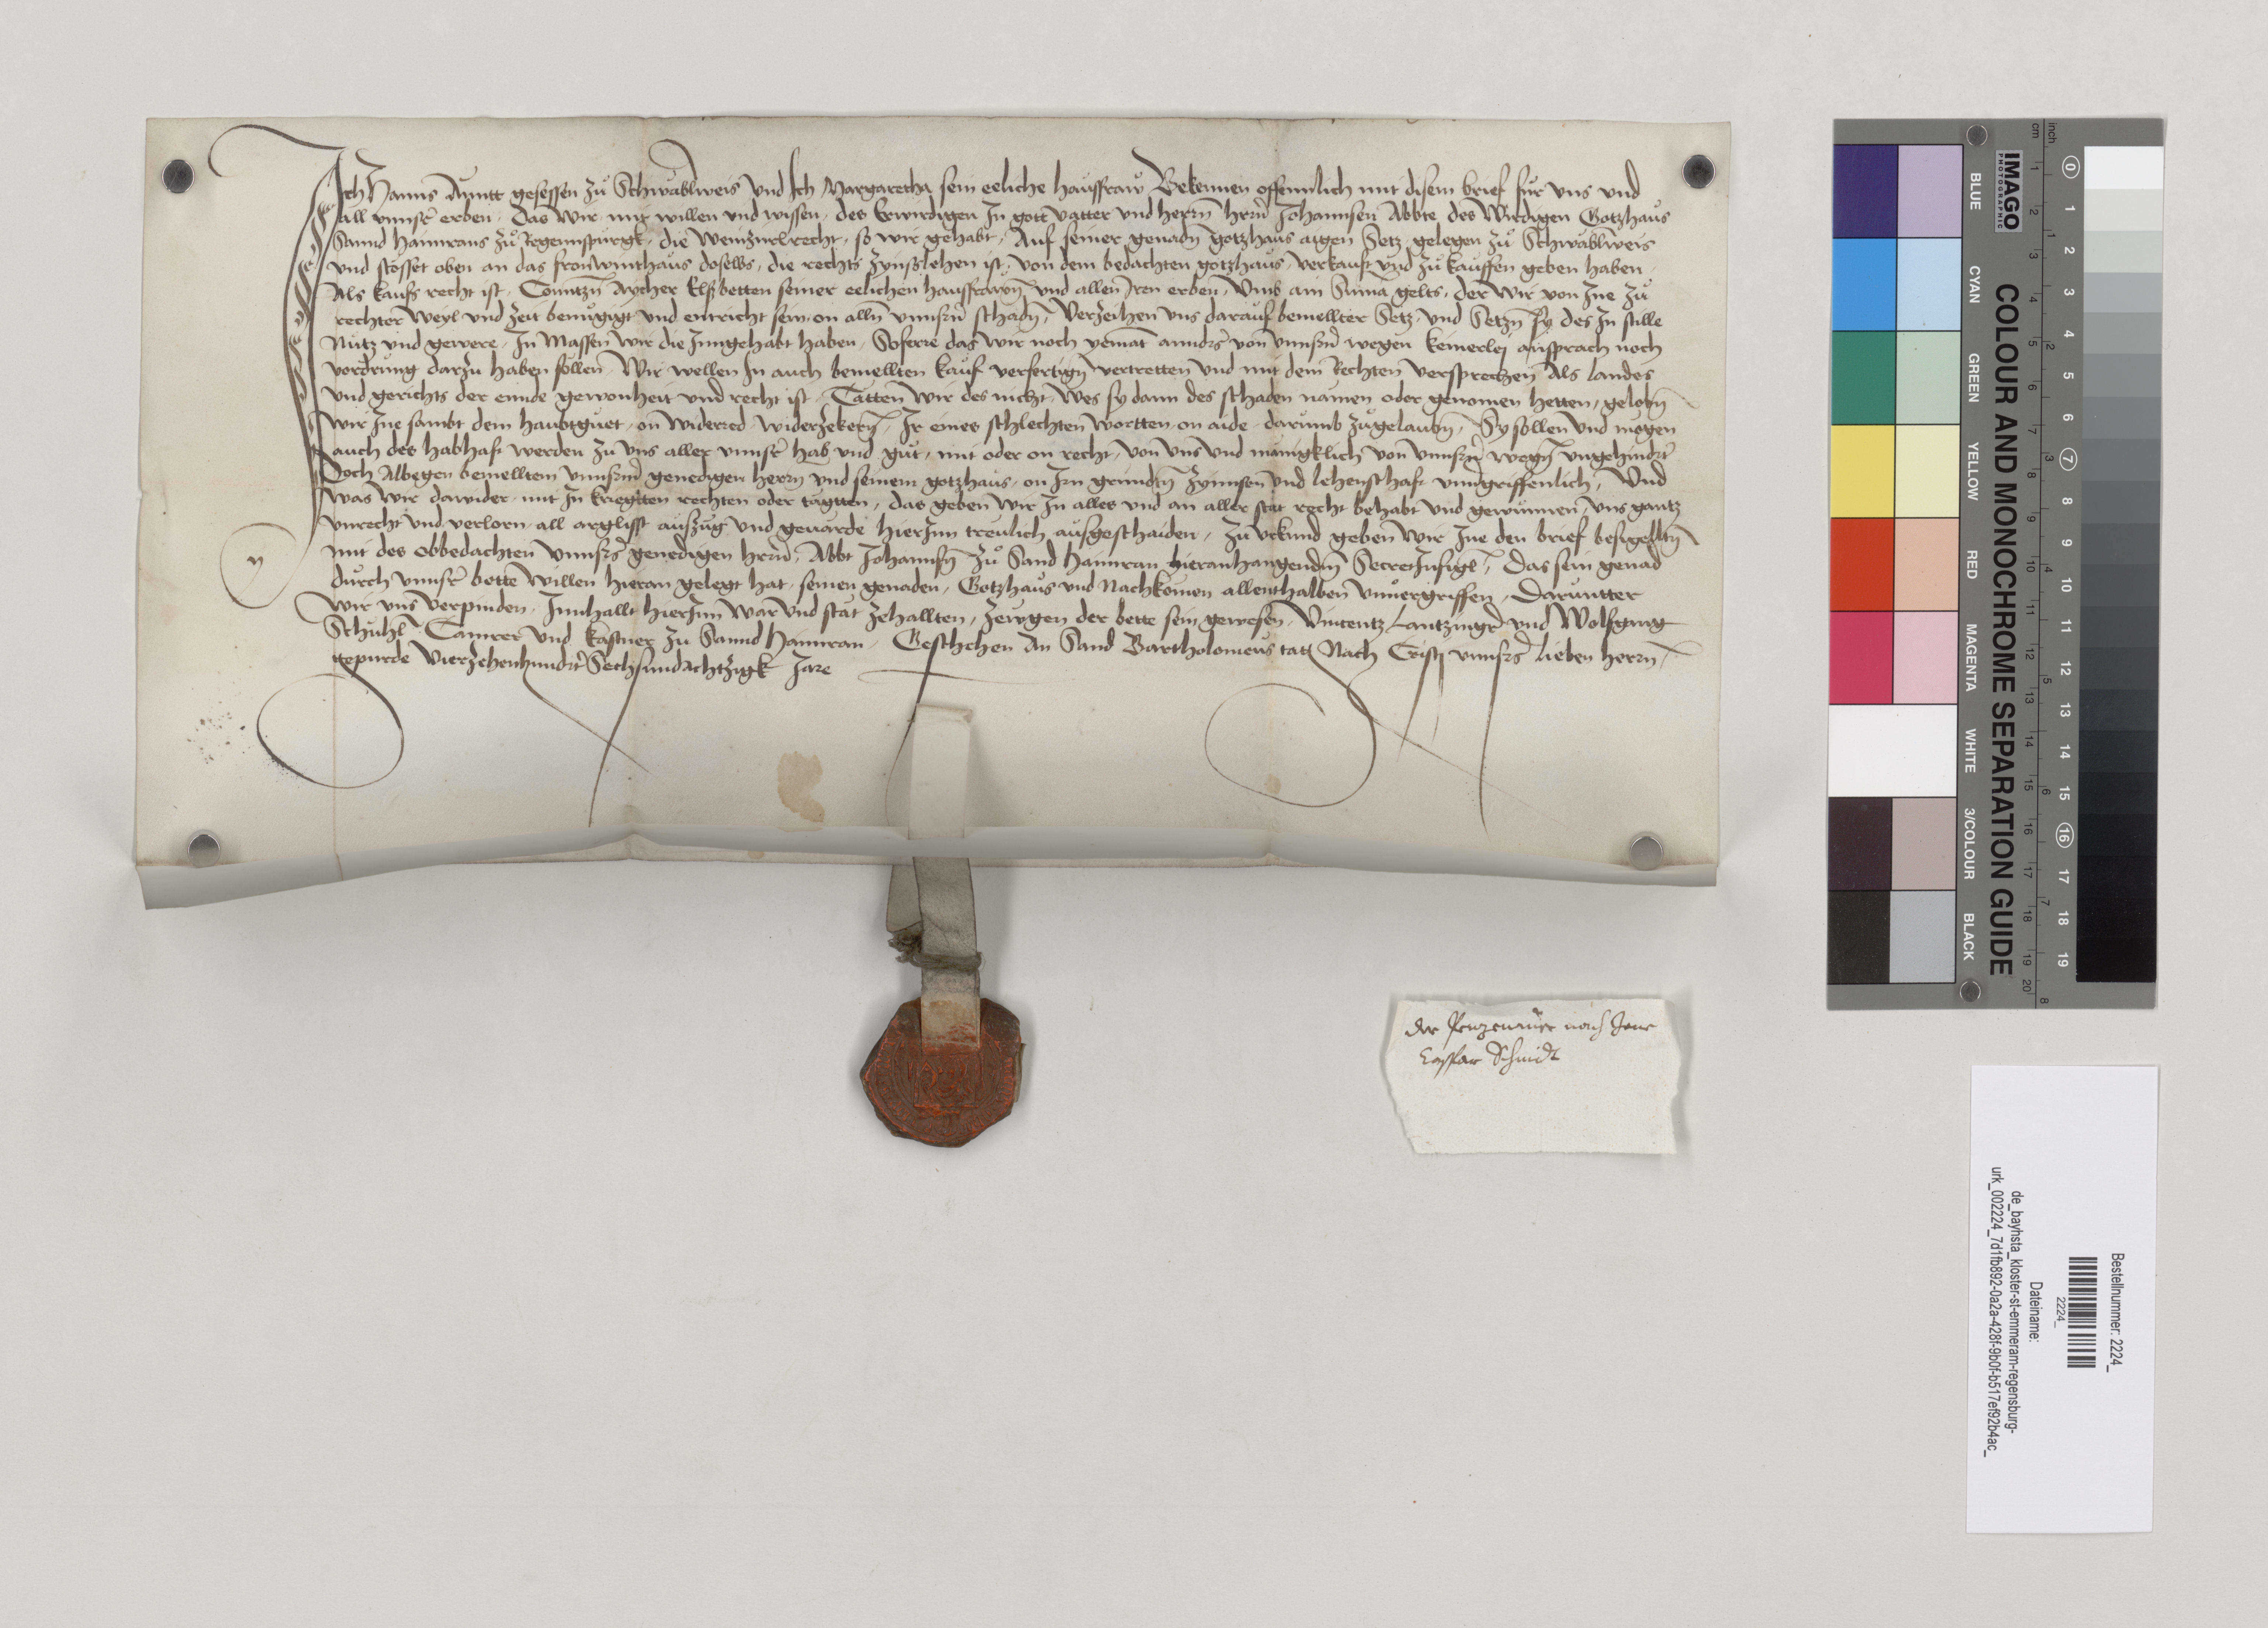 Ich Hanns Aumtt gesessen zů Schwäblweis vnd Ich Margaretha sein eeliche hausfraw Bekennen offennlich mit disem brief für vns vnd
all vnnser erben. Das wir mit willen vnd wissen, des Erwirdigen In gott vatter vnd herrn hern Johannsen Abbte des Wirdigen Gotzhaus
Sannd Haimrans zů Regennspurgk, die Weinzürlrecht, so wir gehabt, Auf seiner genadn gotzhaus aigen Setz, gelegen zů Schwäblweis
vnd stosset oben an das fronwinthaus doselbs, die rechts Zynnslehen ist, von dem bedachten gotzhaus, verkauft vnd zů kauffen geben haben,
Als kaufs recht ist, Conntzn Aycher Elsbetten seiner eelichen hausfrawn vnd allen Iren erben, Vmb ain Suma gelts, der wir von Ine zů
rechter weyl vnd zeit benügigt vnd entricht sein, on alln vnnsern schadn, Verzeihen vns darauf bemellter Setz, vnd Setzn sy des In stille
Nutz vnd gewere, In Massen wir die Inngehabt haben, Soferre das wir noch yemat annders von vnnsern wegen keinerlej ansprach noch
vordrung darzu haben sollen, Wir wellen In auch bemellten kauf verfertign vertretten vnd mit dem Rechten versprechen Als landes
vnd gerichts der ennde gewonheit vnd recht ist, Tätten wir des nicht, Wes sy dann des schaden nämen oder genomen hetten, gelobn
wir Ine sambt dem haubtguet, on widerred widerzekern, Ir eines schlechten wortten on aide darumb zůgelaubn, Sy sollen vnd mögen
auch des habhaft werden zu vns aller vnnser hab vnd gut, mit oder on recht, von vns vnd mänigklich von vnnsern wegn vngehindert
Doch Albegen bemelltem vnnserm genedigen herrn vnd seinem gotzhaus, on Irn gründtn Zynnsen vnd lehenschaft vnngriffenlich, Vnd
was wir dawider mit In kriegtten rechten oder tagtten, das geben wir In alles vnd an aller stat recht behabt vnd gewunnen, vns gantz
vnrecht vnd verlorn, all arglisst auszug vnd geuärde hierInn treulich ausgeschaiden, Zu vrkund geben wir Ine den brief besigelltn
mit des obbedachten vnnsers genedigen herrn, Abbt Johannsn zů Sand Haimran hieranhangendm SecretInsigl, Das sein genad
durch vnnser bette willen hieran gelegt hat, seinen genaden, Gotzhaus vnd Nachkomen allenthalben vnuergriffen, Daruntter
wir vns verpinden, Innhallt hierInn war vnd stät zehallten, Zewgen der bette sein gewesen, Vincentz Lantzinger vnd Wolfgang
Schühl, Camrer vnd kastner zu Sannd Haimran, Geschehen An Sand Bartholomeus tag Nach Cristj vnnsers lieben herrn
gepurde vierzehenhundert Sechsundachtzigk Jare
n
Caspar Schmidt
IMAGO
PHOTOGRAPHIC
COLOUR AND MONOCHROME SEPARATION GUIDE
BLUE CYAN GREEN YELLOW RED MAGENTA WHITE 3/COLOUR BLACK
cm 1 2 3 4 5 6 7 8 9 10 11 12 13 14 15 16 17 18 19 20
inch 1 2 3 4 5 6 7 8
0 1 2 3 4 5 6 7 8 9 10 11 12 13 14 15 16 17 18 19
Bestellnummer: 2224_
2224_
Dateiname:
de_bayhsta_kloster-st-emmeram-regensburg-
urk_002224_7d1fb892-0a2a-428f-9b0f-b517ef92b4ac_